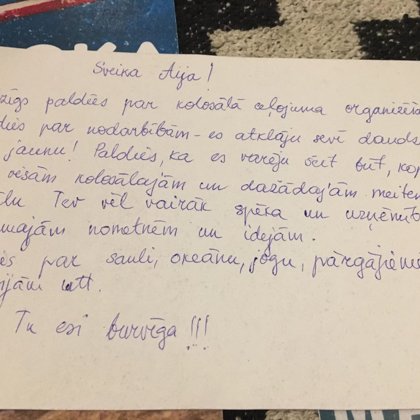 Sveika Aija!
zīgs paldies par kolosālā ceļojuma organizēša
dies par nodarbībām - es atklāju sevī daudz
jaunu! Paldies, ka es varēju šeit būt, kop
visām kolosālajām un dažādajām meiten
lu Tev vēl vairāk spēka un uzņēmīb
majām nometnēm un idejām.
es par sauli, okeānu, jogu, pārgājienu
ijām utt.
Tu esi burvīga!!!